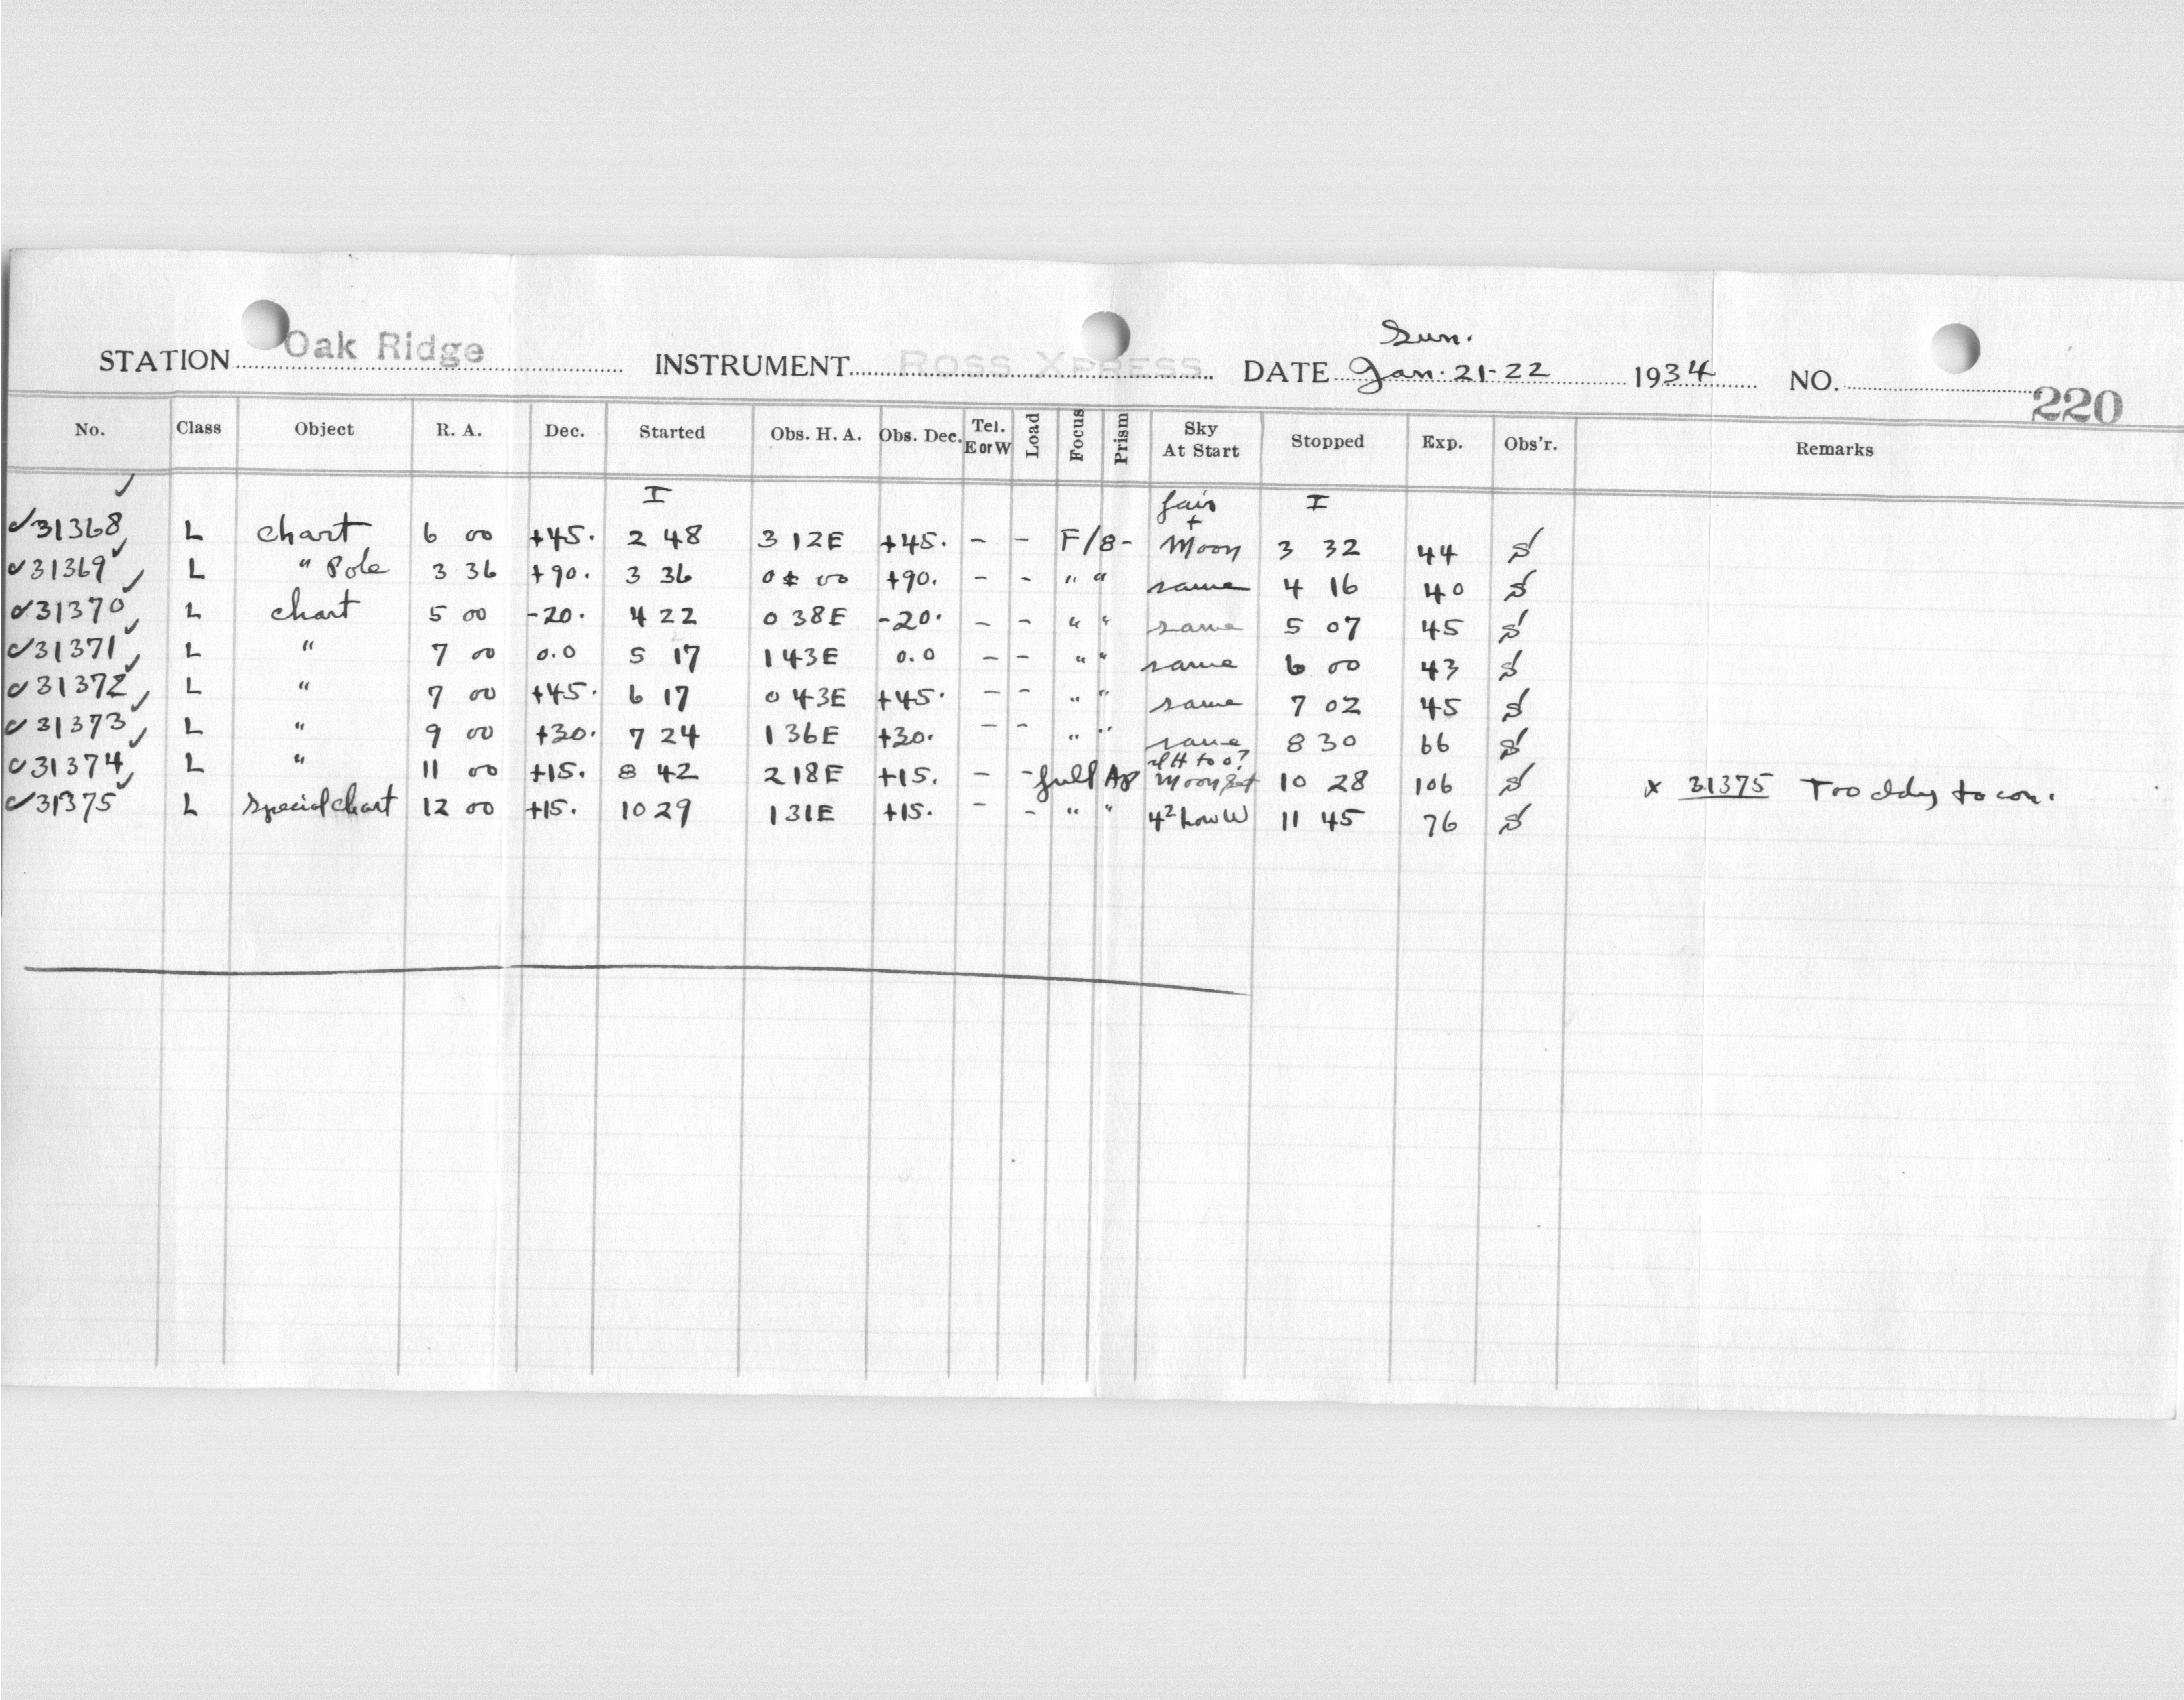 Sun.
STATION Oak Ridge INSTRUMENT ROSS XPRESS DATE Jan. 21-22 1934 NO. 220
No. Class Object R. A. Dec. Started Obs. H. A. Obs. Dec. Tel. E or W Load Focus Prism Sky At Start Stopped Exp. Obs'r. Remarks
✓ I fair I
✓31368 L chart 6 00 +45. 2 48 3 12E +45. - - F/8- + Moon 3 32 44 S
✓31369✓ L " Pole 3 36 +90. 3 36 0 00 +90. - - " " same 4 16 40 S
✓31370✓ L chart 5 00 -20. 4 22 0 38E -20. - - " " same 5 07 45 S
✓31371✓ L " 7 00 0.0 5 17 1 43E 0.0 - - " " same 6 00 43 S
✓31372✓ L " 7 00 +45. 6 17 0 43E +45. - - " " same 7 02 45 S
✓31373✓ L " 9 00 +30. 7 24 1 36E +30. - - " " same 8 30 66 S
✓31374✓ L " 11 00 +15. 8 42 2 18E +15. - - full Ap Moon set 10 28 106 S
✓31375 L special chart 12 00 +15. 10 29 1 31E +15. - - " " 4² low W 11 45 76 S x 31375 Too to con.